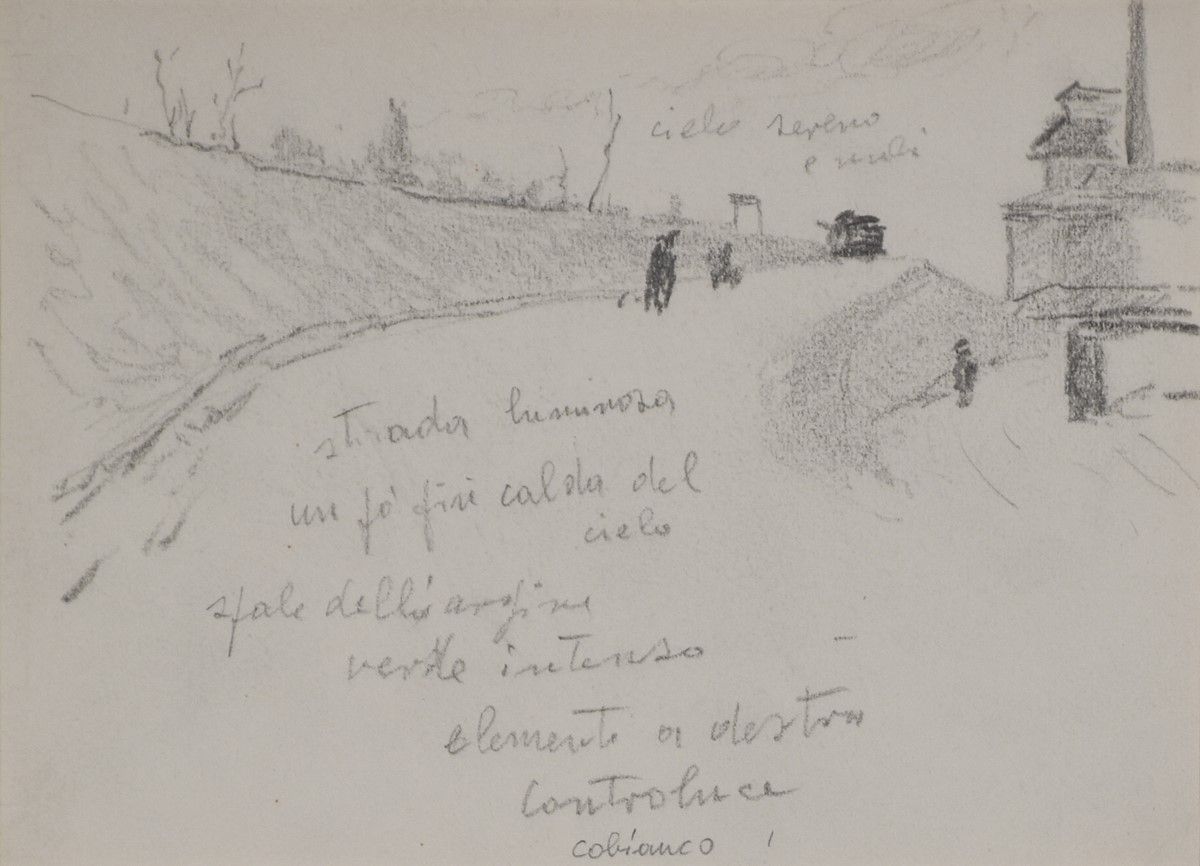 cielo sereno
e nubi
strada luminosa
un pó piú calda del
cielo
spale dell'argine
verde intenso
elementi a destra
controluce
cobianco